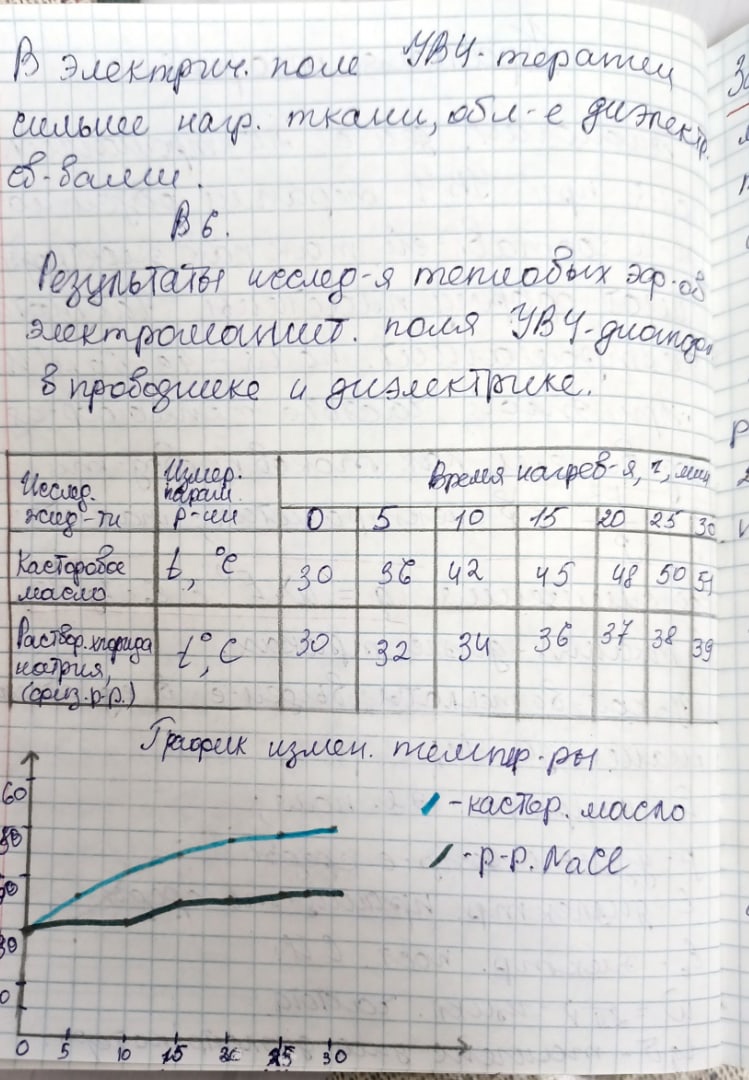 В электрич. поле УВЧ-терапии
сильнее нагр. ткани, обл-е диэлектр.
св-вами.
В 6.
Результаты исслед-я тепловых эф-ов
электромагнит. поля УВЧ-диапазо
в проводнике и диэлектрике.
Исслед. жид-ти | Измер. парам. р-ции | Время нагрев-я, τ, мин
0 5 10 15 20 25 30
Касторовое масло | t, °C | 30 36 42 45 48 50 51
Раствор хлорида натрия, (физ. р-р.) | t°, C | 30 32 34 36 37 38 39
График измен. темпер-ры
- кастор. масло
- р-р. NaCl
60
50
40
30
0
0 5 10 15 20 25 30